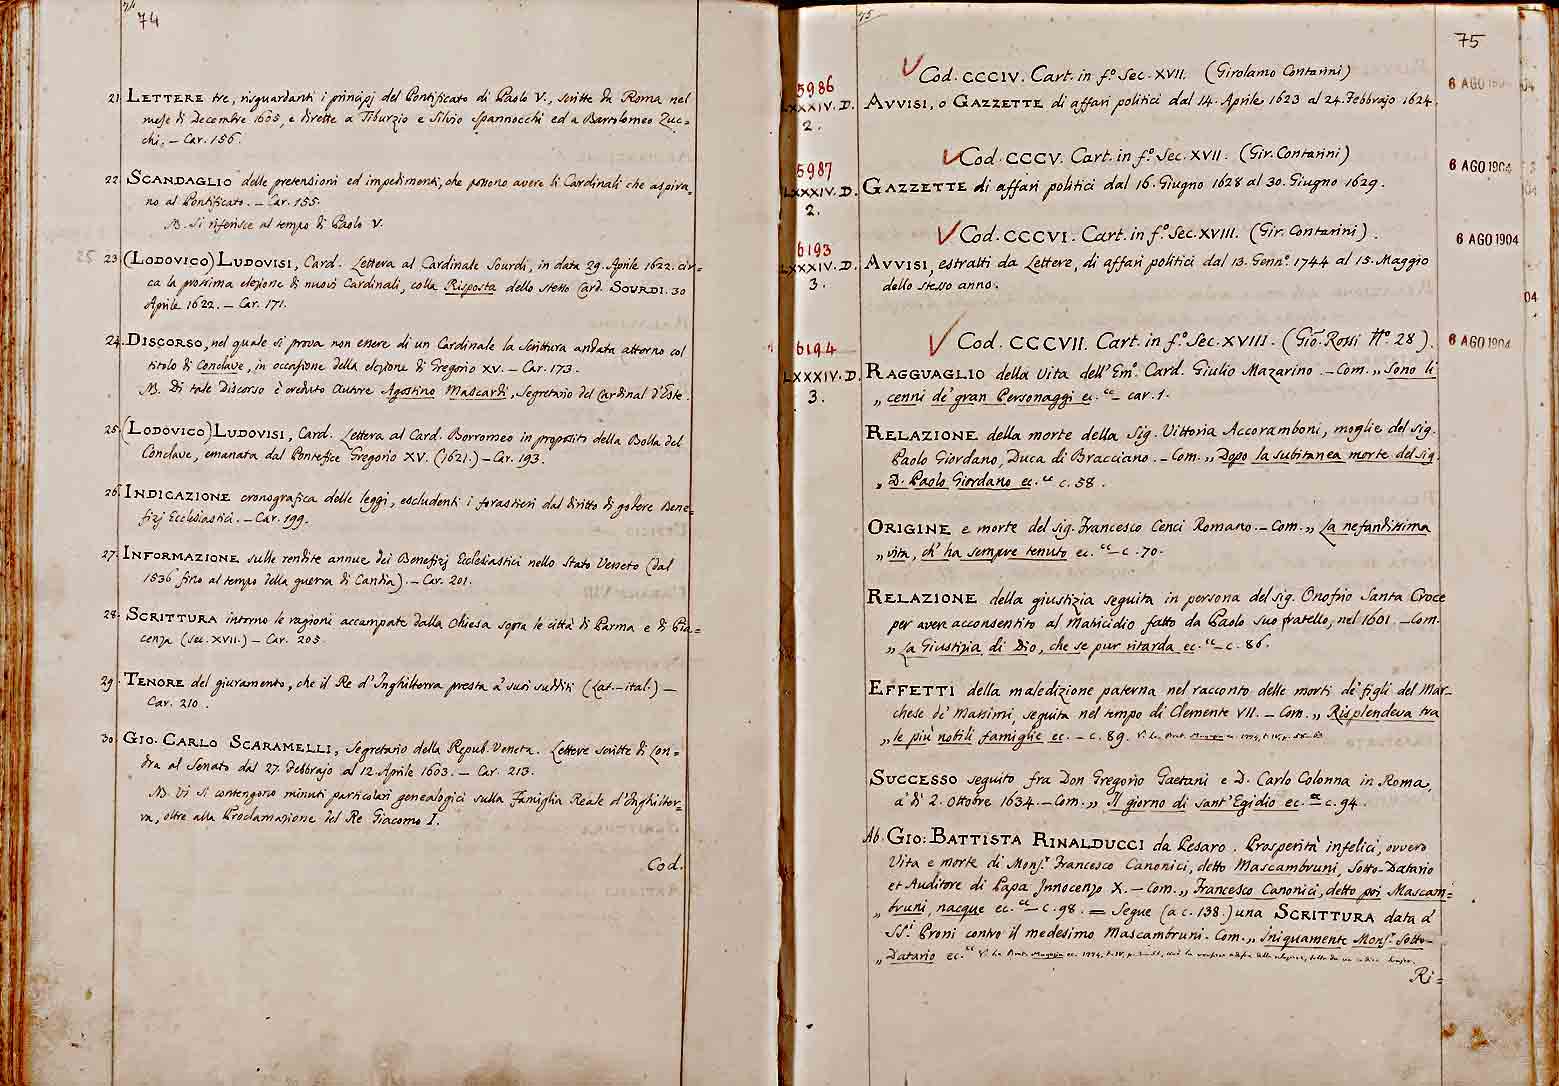 74
74
21 LETTERE tre, risguardanti i principj del Pontificato di Paolo V., scritte da Roma nel
mese di Decembre 1605, e dirette a Tiburzio e Silvio Spannocchi ed a Bartolomeo Zuc=
chi. – Car. 156.
22 SCANDAGLIO delle pretensioni ed impedimenti, che possono avere li Cardinali che aspira=
no al Pontificato. – Car. 155.
NB. Si riferisce al tempo di Paolo V.
23 (LODOVICO) LUDOVISI, Card. Lettera al Cardinale Sourdi, in data 29. Aprile 1622. cir=
ca la prossima elezione di nuovi Cardinali, colla Risposta dello stesso Card. SOURDI. 30
Aprile 1622. – Car. 171.
24. DISCORSO, nel quale si prova non essere di un Cardinale la scrittura andata attorno col
titolo di Conclave, in occasione della elezione di Gregorio XV. – Car. 173.
NB. Di tale Discorso è creduto Autore Agostino Mascardi, Segretario del Cardinal d'Este.
25. (LODOVICO) LUDOVISI, Card. Lettera al Card. Borromeo in proposito della Bolla del
Conclave, emanata dal Pontefice Gregorio XV. (1621.) – Car. 193.
26. INDICAZIONE cronografica delle leggi, escludenti i forastieri dal diritto di godere Bene=
fizj Ecclesiastici. – Car. 199.
27. INFORMAZIONE sulle rendite annue dei Benefizj Ecclesiastici nello Stato Veneto (dal
1536 fino al tempo della guerra di Candia). – Car. 201.
28. SCRITTURA intorno le ragioni accampate dalla Chiesa sopra le città di Parma e di Pia=
cenza (sec. XVII.) – Car. 205.
29. TENORE del giuramento, che il Re d'Inghilterra presta a' suoi sudditi (Lat.–ital.) –
Car. 210.
30. GIO. CARLO SCARAMELLI, Segretario della Repub. Veneta. Lettere scritte di Lon=
dra al Senato dal 27. Febbrajo al 12. Aprile 1603. – Car. 213.
NB. Vi si contengono minuti particolari genealogici sulla Famiglia Reale d'Inghilter=
ra, oltre alla Proclamazione del Re Giacomo I.
Cod.
75
75
Cod. CCCIV. Cart. in fº. Sec. XVII. (Girolamo Contarini)
5986
LXXXIV. D.
2.
AVVISI, o GAZZETTE di affari politici dal 14. Aprile 1623 al 24. Febbrajo 1624.
6 AGO 1904
Cod. CCCV. Cart. in fº. Sec. XVII. (Gir. Contarini)
5987
LXXXIV. D.
2.
GAZZETTE di affari politici dal 16. Giugno 1628 al 30. Giugno 1629.
6 AGO 1904
Cod. CCCVI. Cart. in fº. Sec. XVIII. (Gir. Contarini).
6193
LXXXIV. D.
3.
AVVISI, estratti da Lettere, di affari politici dal 13. Gennº. 1744 al 15. Maggio
dello stesso anno.
6 AGO 1904
Cod. CCCVII. Cart. in fº. Sec. XVIII. (Gio. Rossi Nº. 28).
6194
LXXXIV. D.
3.
6 AGO 1904
RAGGUAGLIO della Vita dell'Emº. Card. Giulio Mazarino. – Com. „ Sono li
„ cenni de' gran Personaggi ec. “ – car. 1.
RELAZIONE della morte della Sig. Vittoria Accoramboni, moglie del Sig.
Paolo Giordano, Duca di Bracciano. – Com. „ Dopo la subitanea morte del Sig.
„ D. Paolo Giordano ec. “ c. 58.
ORIGINE e morte del Sig. Francesco Cenci Romano. – Com. „ La nefandissima
„ vita, ch'ha sempre tenuto ec. “ – c. 70.
RELAZIONE della giustizia seguita in persona del sig. Onofrio Santa Croce
per aver acconsentito al Matricidio fatto da Paolo suo fratello, nel 1601. – Com.
„ La Giustizia di Dio, che se pur ritarda ec. “ – c. 86.
EFFETTI della maledizione paterna nel racconto delle morti de' figli del Mar-
chese de' Massimi, seguita nel tempo di Clemente VII. – Com. „ Risplendeva tra
„ le più nobili famiglie ec. – c. 89.
SUCCESSO seguito fra Don Gregorio Gaetani e D. Carlo Colonna in Roma,
a' dì 2. Ottobre 1634. – Com. „ Il giorno di sant'Egidio ec. “ c. 94.
Ab. GIO: BATTISTA RINALDUCCI da Pesaro. Prosperità infelici, ovvero
Vita e morte di Monsr. Francesco Canonici, detto Mascambruni, Sotto-Datario
et Auditore di Papa Innocenzo X. – Com. „ Francesco Canonici, detto poi Mascam=
„ bruni, nacque ec. “ – c. 98. = Segue (a c. 138.) una SCRITTURA data a'
SSi. Proni contro il medesimo Mascambruni. Com. „ Iniquamente Monsr. Sotto-
„ Datario ec. “
Ri=